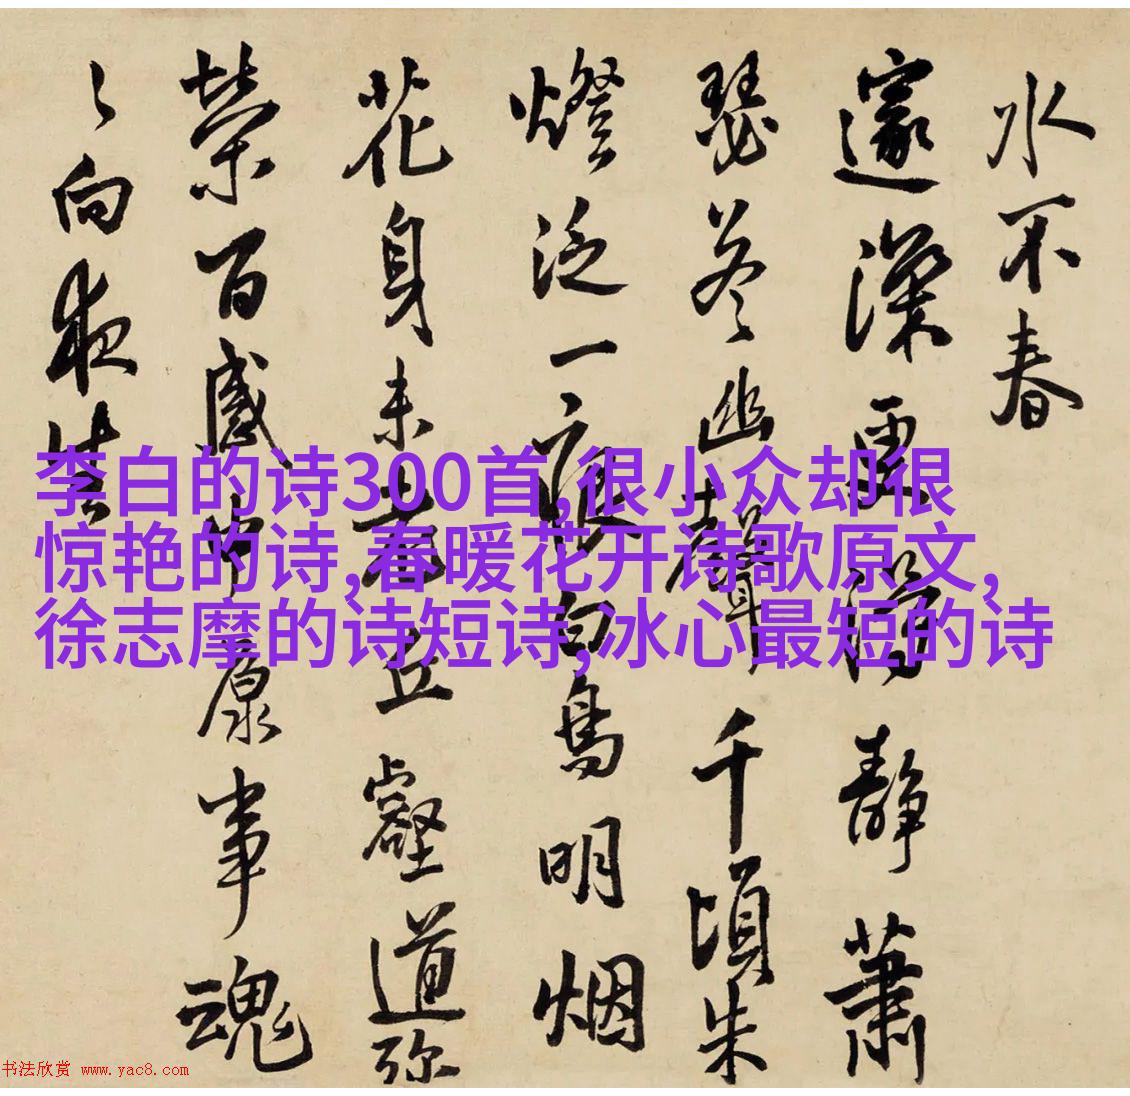 水不春
邃深更静蕭
瑟答幽聲千頃朱
燈泛一痕白鳥明烟
花身未老丘壑道弥
榮百感中原事魂
向夜
李白的诗300首,很小众却很
惊艳的诗,春暖花开诗歌原文,
徐志摩的诗短诗,冰心最短的诗
书法欣赏 www.yac8.com